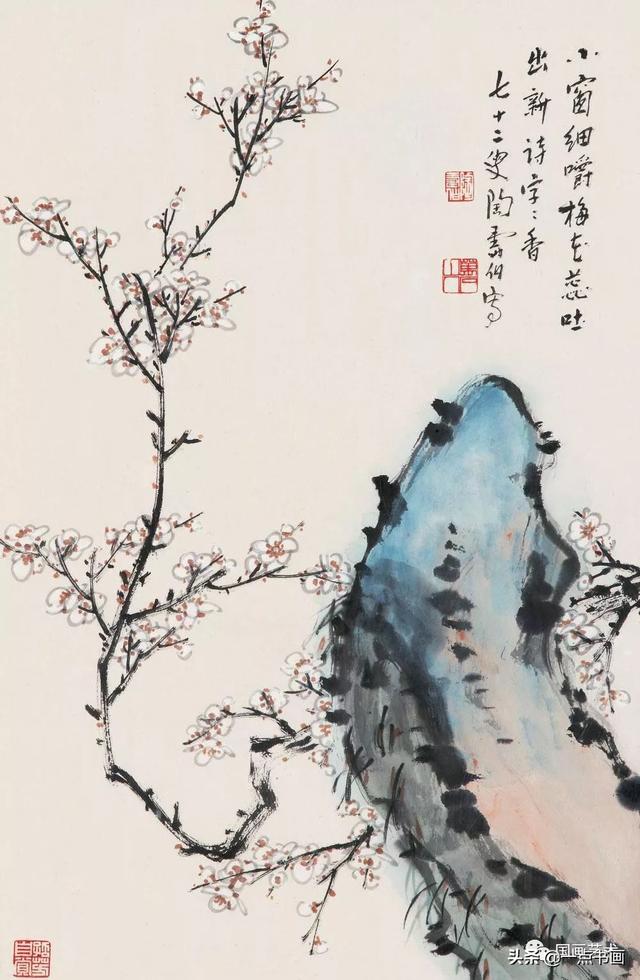 小窗细嚼梅花蕊吐
出新诗字〻香
七十二叟陶寿伯写
国画艺术
头条@一点书画